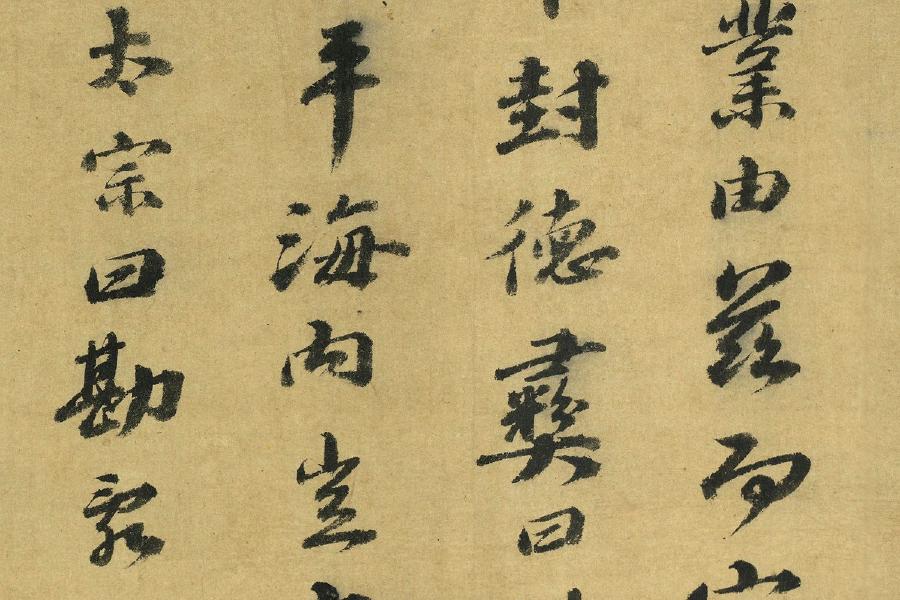 業由茲而
封德彝曰
平海內豈
太宗曰勘亂